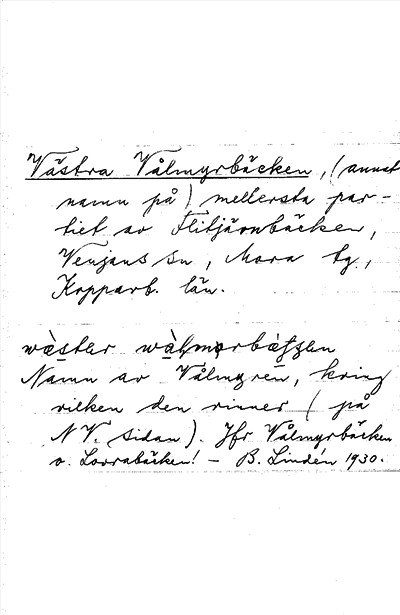 Västra Våmyrbäcken, (annat
namn på) mellersta par-
tiet av Flitjärnbäcken,
Venjans sn, Mora tg.,
Kopparb. län.
Namn av Våmyren, kring
vilken den rinner (på
NV. sidan). Jfr Våmyrbäcken
o. Lovrabäcken! – B. Lindén 1930.